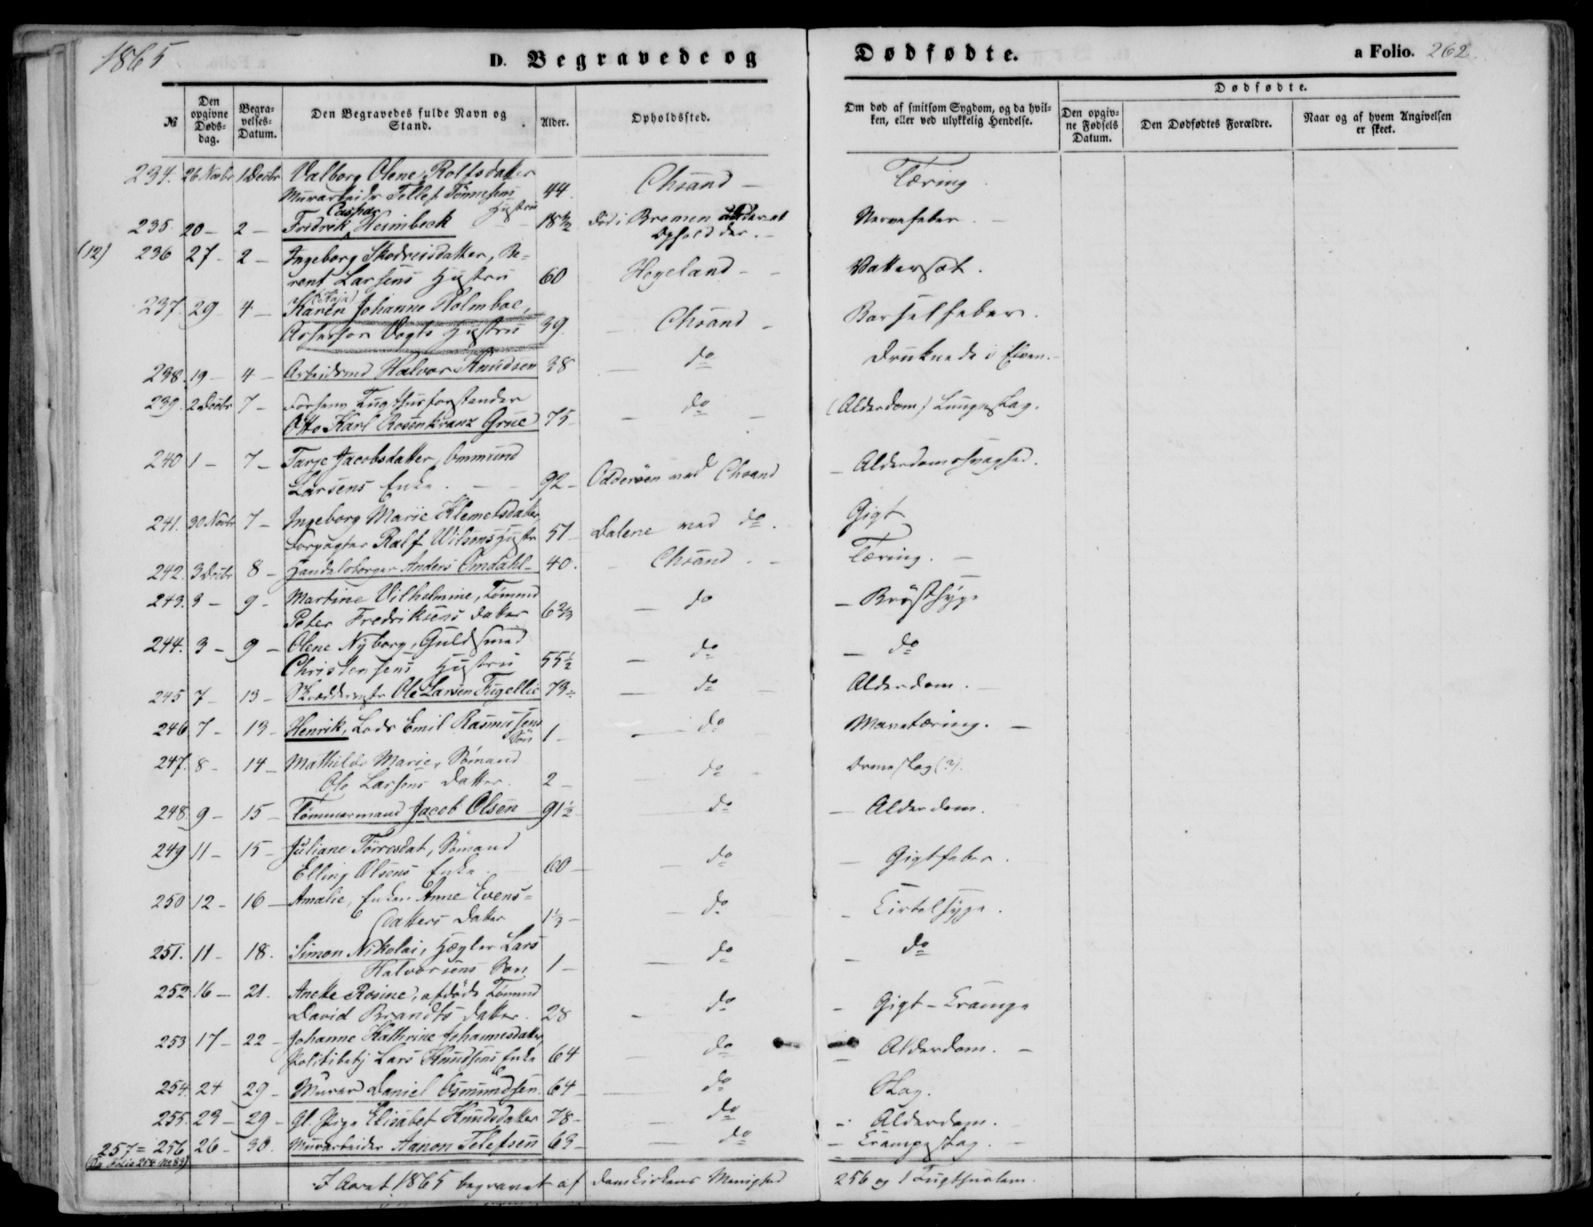 1865
D. Begravede og Dødfødte.
a Folio. 262.
№
Den opgivne Døds-dag.
Begra-velses-Datum.
Den Begravedes fulde Navn og Stand.
Alder.
Opholdssted.
Om død af smitsom Sygdom, og da hvil-ken, eller ved ulykkelig Hendelse.
Dødfødte.
Den opgiv-ne Fødsels Datum.
Den Dødfødtes Forældre.
Naar og af hvem Angivelsen er skeet.
234. 26 Novbr 1 Decbr Valborg Olene Rolfsdatter
Murarbeider Tellef Tønnesens Hustru 44 Chsand – Tæring
235. 20 – 2 – Fredrik Caspar Heimbeck 18½ død i Bremen under et Ophold der. – Nervefeber. –
(12) 236 27 – 2 – Ingeborg Skodveisdatter, Be-
rent Larsens Hustru 60 Hegeland – Vattersot.
237. 29 4 – Karen (Kaja) Johanne Holmboe,
Assessor Vogts Hustru 39 – Chsand – Barselfeber.
238. 19 – 4 – Arbeidsmd Halvor Knudsen 38 – do Druknede i Elven. –
239. 2 Decbr 7 – Forhenv. Tugthusforstander
Otto Karl Rosenkranz Grue 75 – do – (Alderdom) Lungeslag.
240 1 – 7 – Tarje Jacobsdatter, Ommund
Larsens Enke. – 92 – Odderøen ved Chsand – Alderdomssvaghed.
241. 30 Novbr 7 – Ingeborg Marie Klemetsdatter,
Forpagter Ralf Wilsons Hustr 51 – Dalene ved do. Gigt
242. 3 Decbr 8 – Handelsborger Anders Omdahl – 40. – Chsand – Tæring. –
243. 3 – 9 – Martine Vilhelmine, Tømmd
Peter Fredriksens Datter 6⅔ – do – Brystsyge
244. 3 – 9 – Olene Nyborg, Guldsmed
Christensens Hustru 55½ – do – do
245 7 – 13 – Skræddermstr Ole Larsen Fugellie 73 – do – Alderdom. –
246 7 – 13 – Henrik, Lods Emil Rasmussens Søn 1 – do Mavetæring. –
247. 8 – 14 – Mathilde Marie, Sømand
Ole Larsens Datter 2 – do – Ormeslag (?).
248. 9 – 15 – Tømmermand Jacob Olsen 91½ – do – Alderdom.
249 11 – 15 – Juliane Torresdat, Sømand
Elling Olsens Enke 60 – do – Gigtfeber.
250 12 – 16 – Amalie, Enken Anne Evens-
datters Datter 1⅓ – do – Kirtelsyge.
251. 11 – 18. Simon Nikolai, Hegler Lars
Halvorsens Søn 1 – do – do
252 16 – 21. Anette Rosine, afdøde Tømmd
David Brandts Datter. 28 – do – Gigt – Krampe
253 17 – 22 – Johanne Kathrine Johannesdatter,
Politibetj Lars Knudsens Enke 64 – do – Alderdom. –
254. 24 29 – Murer Daniel Osmundsen 64 – do Slag.
255. 23 – 29 – Gl. Pige Elisabet Knudsdatter 78 – do – Alderdom.
257 = 256 26 – 30. Murarbeider Aanon Telefsen 63 – do – Krampeslag. –
I Aaret 1865 begravet af Domkirkens Menighed 256 og 1 Tugthuslem.